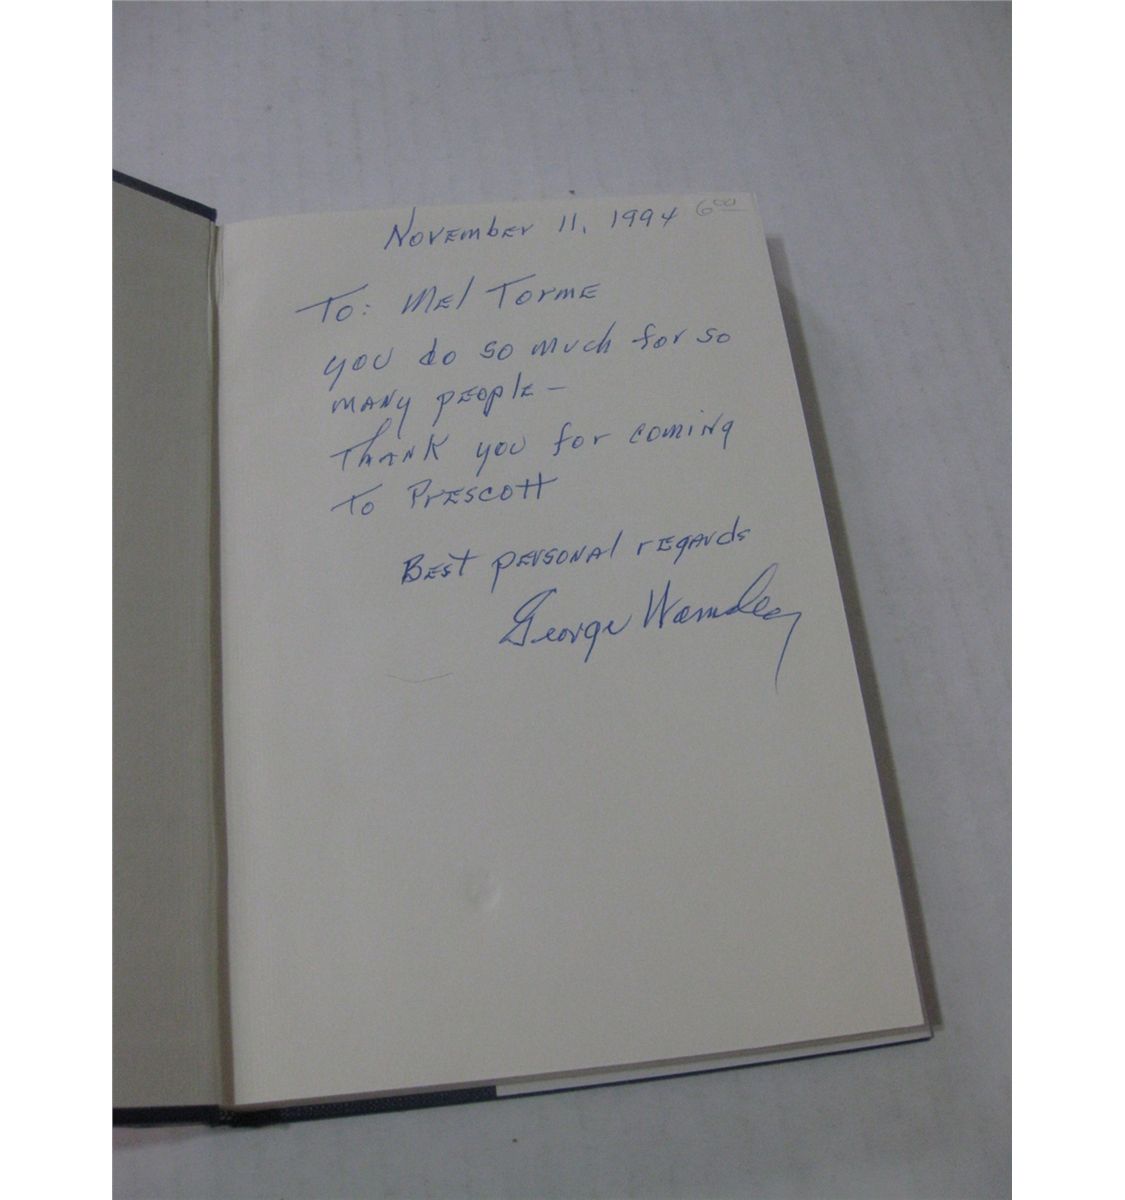 November 11, 1994 600
To: Mel Torme
you do so much for so
many people —
Thank you for coming
to Prescott
Best personal regards
George